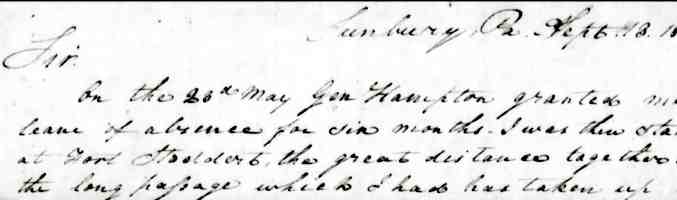 Sunbury Pa. Sept. 13. 18
Sir.
On the 23d May Gen Hampton granted me
leave of absence for six months. I was then sta
at Fort Stoddert, the great distance together
the long passage which I had has taken up